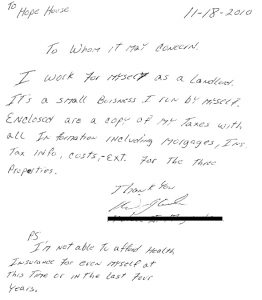 To
Hope House
11-18-2010
To Whom it may concern.
I work for myself as a Landlord.
It's a small Buisness I run by myself.
Enclosed are a copy of my Taxes with
all Information including Morgages, Ins
Tax info, costs, EXT. For The Three
Properties.
Thank You
PS
I'm not able To afford Health
Insurance for even myself at
This Time or in the last four
Years.